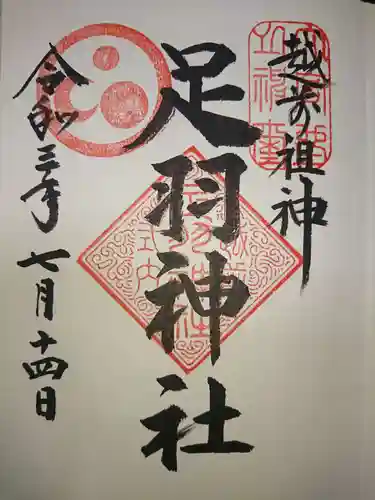 越前の祖神
足羽神社
令和三年
七月十四日